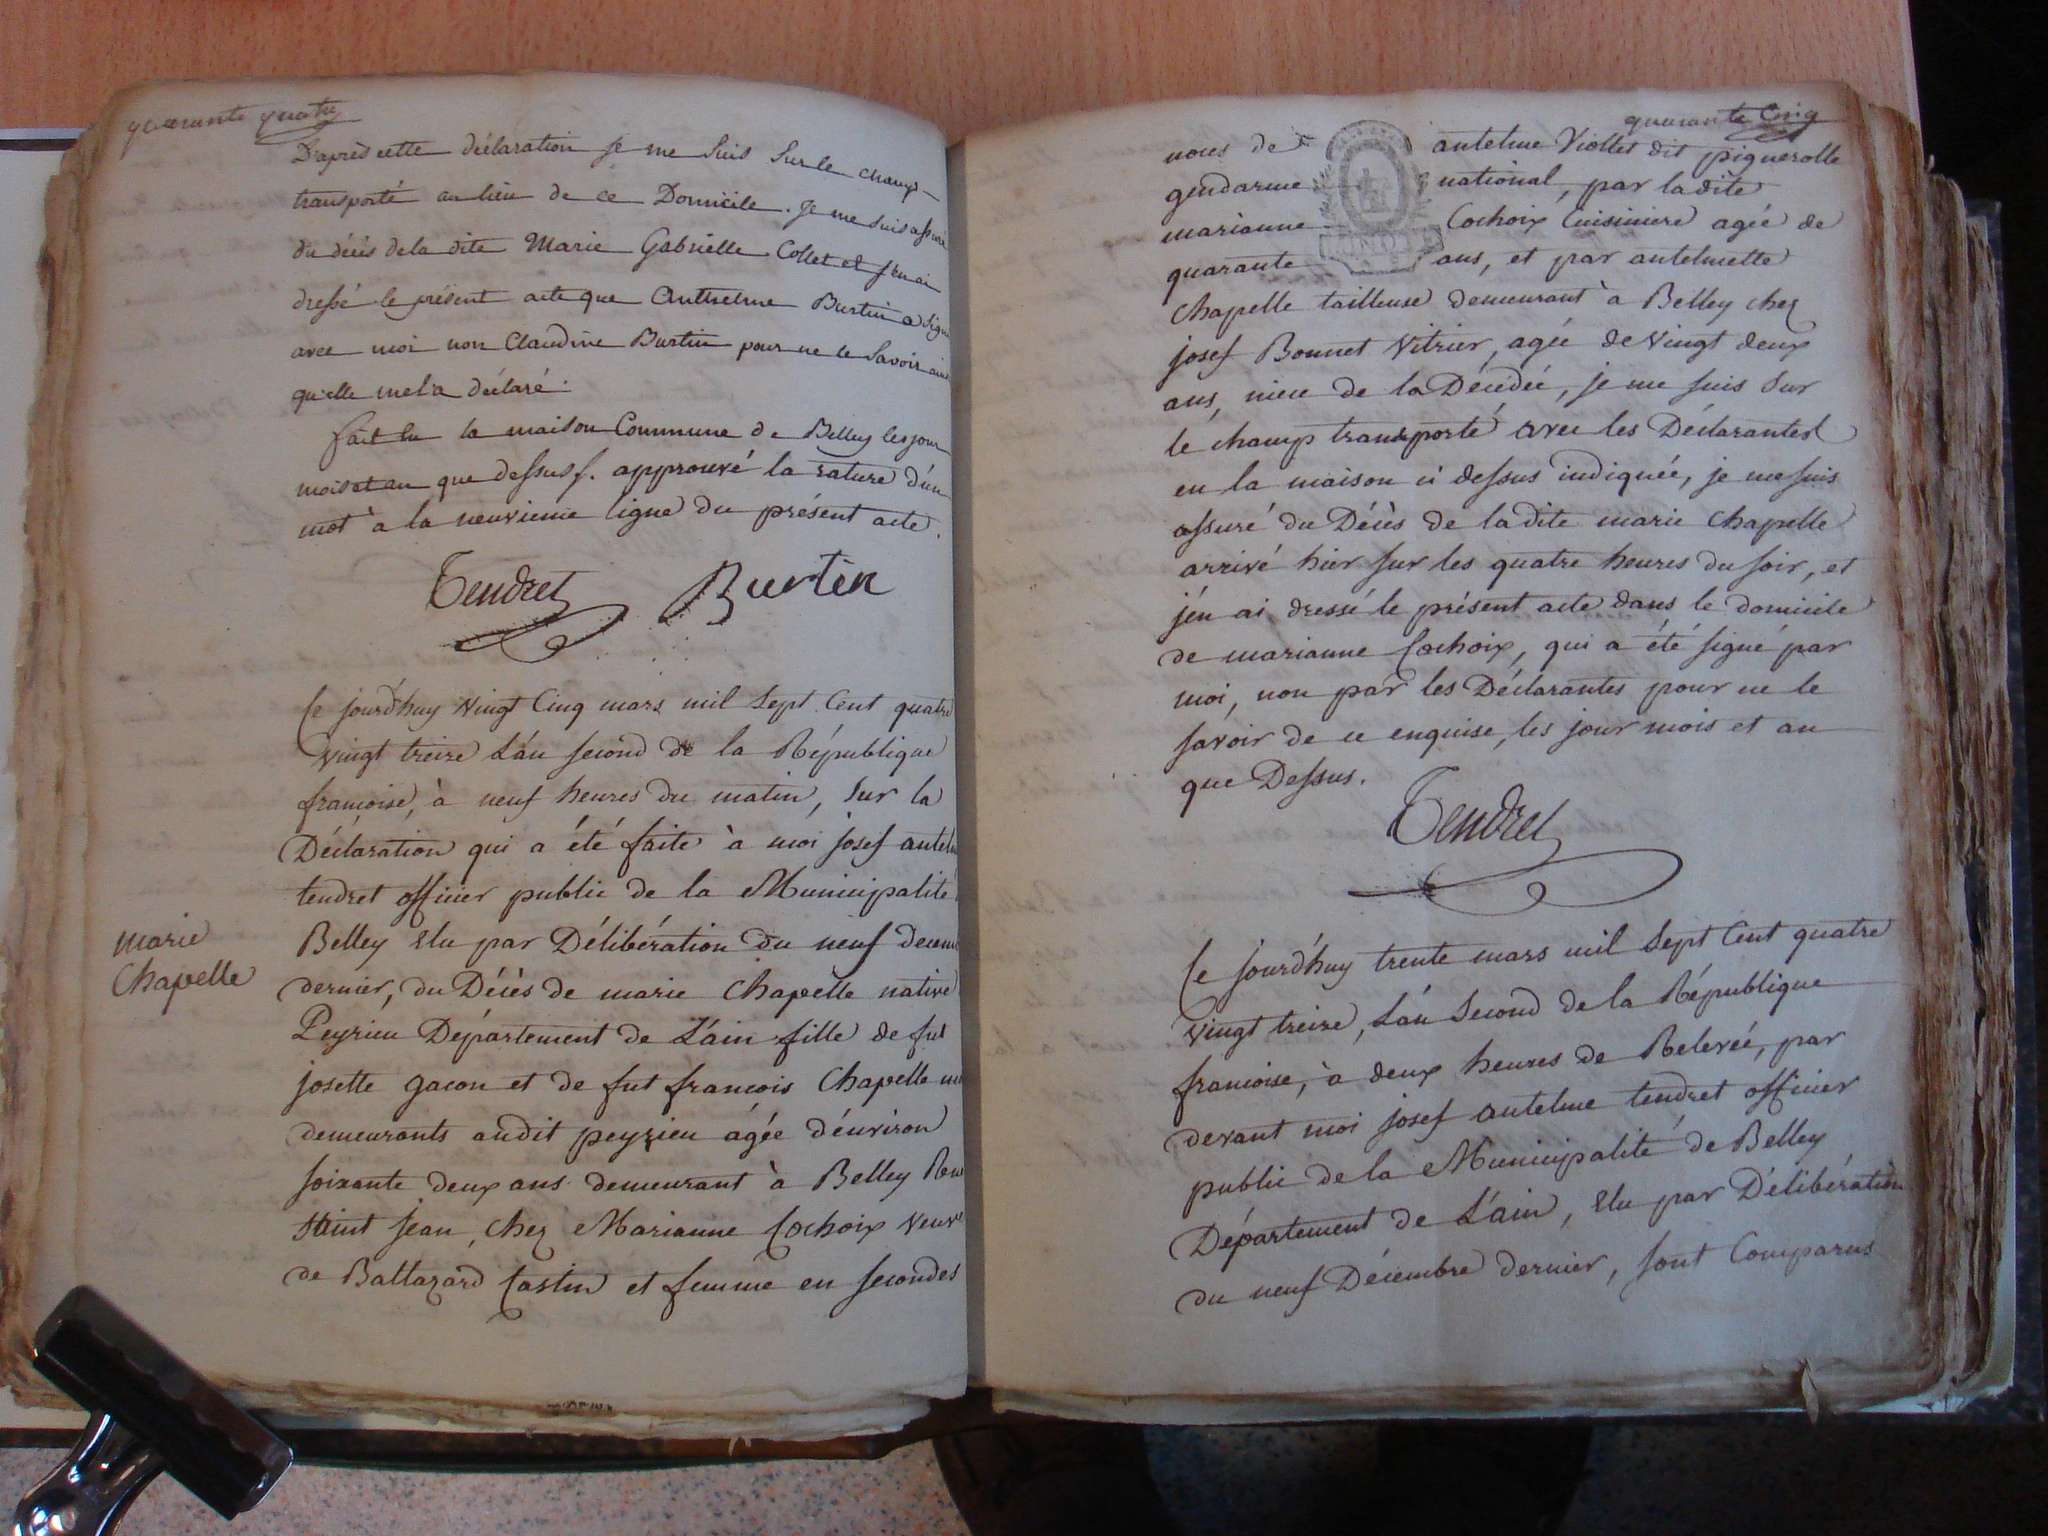 quarante quatre
D'apred cette déclaration je me Suis Sur le champ
transporté au lieu de ce Domicile. Je me suis assuré
du décès de la dite Marie Gabrielle Collet et j'en ai
dressé le présent acte que Anthelme Burtin a signé
avec moi non Claudine Burtin pour ne le Savoir ainsi
qu'elle me l'a déclaré.
fait en la maison Commune de Belley les jour
mois et an que dessus. approuvé la rature d'un
mot à la neuvieme ligne du présent acte.
Tendret Burtin
marie
Chapelle
Ce jourd'huy vingt Cinq mars mil Sept Cent quatre
vingt treize L'an second de la République
francoise, à neuf heures du matin, sur la
Déclaration qui a été faite à moi josef antelme
tendret officier public de la Municipalité
Belley Elu par Délibération du neuf decem
dernier, du Décès de marie Chapelle native
Peyrieu Département de L'ain fille de fut
josette gacon et de fut francois Chapelle
demeurants audit peyrieu agée d'environ
soixante deux ans demeurant à Belley Rue
Saint Jean, chez Marianne Cochoix veuve
de Baltazard Castin et femme en secondes
quarante Cinq
noces de antelme Viollet dit pignerolle
gendarme national, par la dite
marianne Cochoix Cuisiniere agée de
quarante ans, et par antelmette
Chapelle tailleuse demeurant à Belley chez
josef Bonnet Vitrier, agée de vingt deux
ans, niece de la Décédée, je me suis sur
le champ transporté avec les Déclarantes
en la maison ci dessus indiquée, je me suis
assuré du Décès de la dite marie Chapelle
arrivé hier sur les quatre heures du soir, et
j'en ai dressé le présent acte dans le domicile
de marianne Cochoix, qui a été signé par
moi, non par les Déclarantes pour ne le
savoir de ce enquise, les jour mois et an
que Dessus.
Tendret
Ce jourd'huy trente mars mil Sept Cent quatre
vingt treize, L'an Second de la République
francoise, à deux heures de Relevée, par
devant moi josef antelme tendret officier
public de la Municipalité de Belley
Département de L'ain, Elu par Délibération
du neuf Décembre dernier, sont Comparus